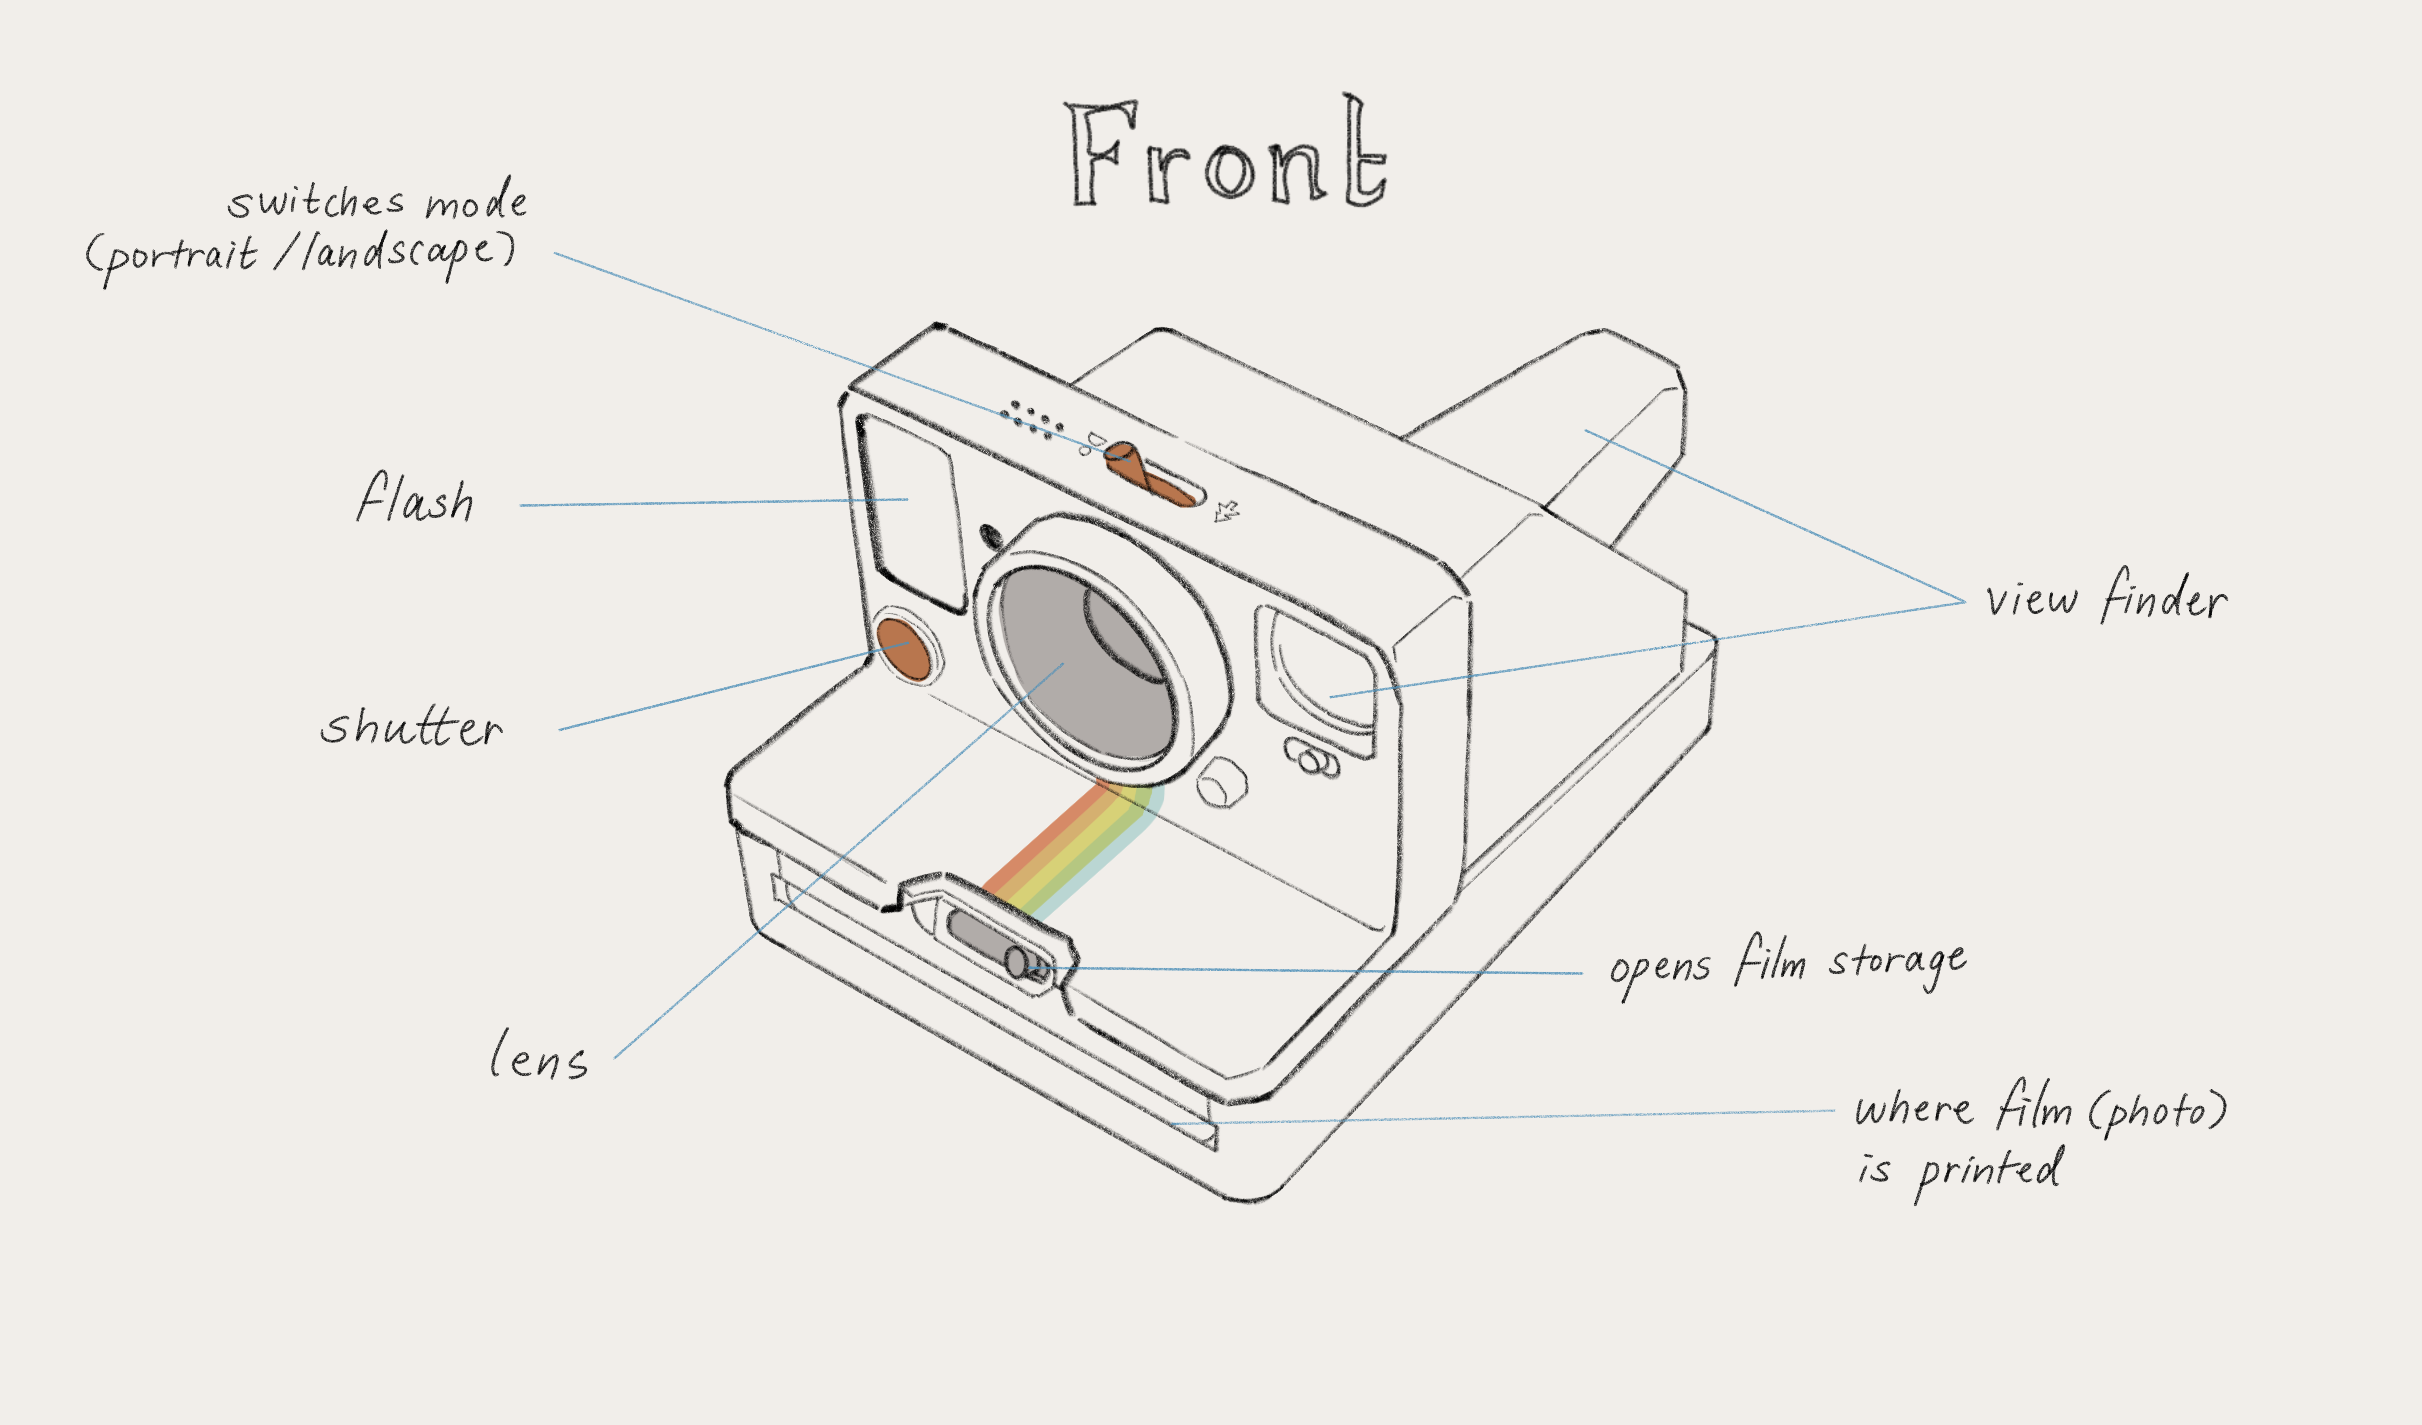 Front
switches mode
(portrait /landscape)
flash
shutter
lens
view finder
opens film storage
where film (photo)
is printed